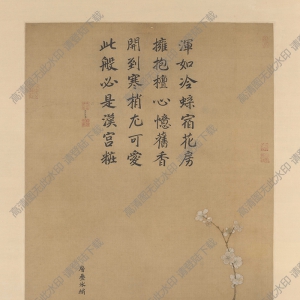 渾如冷蝶宿花房
擁抱檀心憶舊香
開到寒梢尤可愛
此般必是漢宮粧
層疊冰綃
高清图无水印